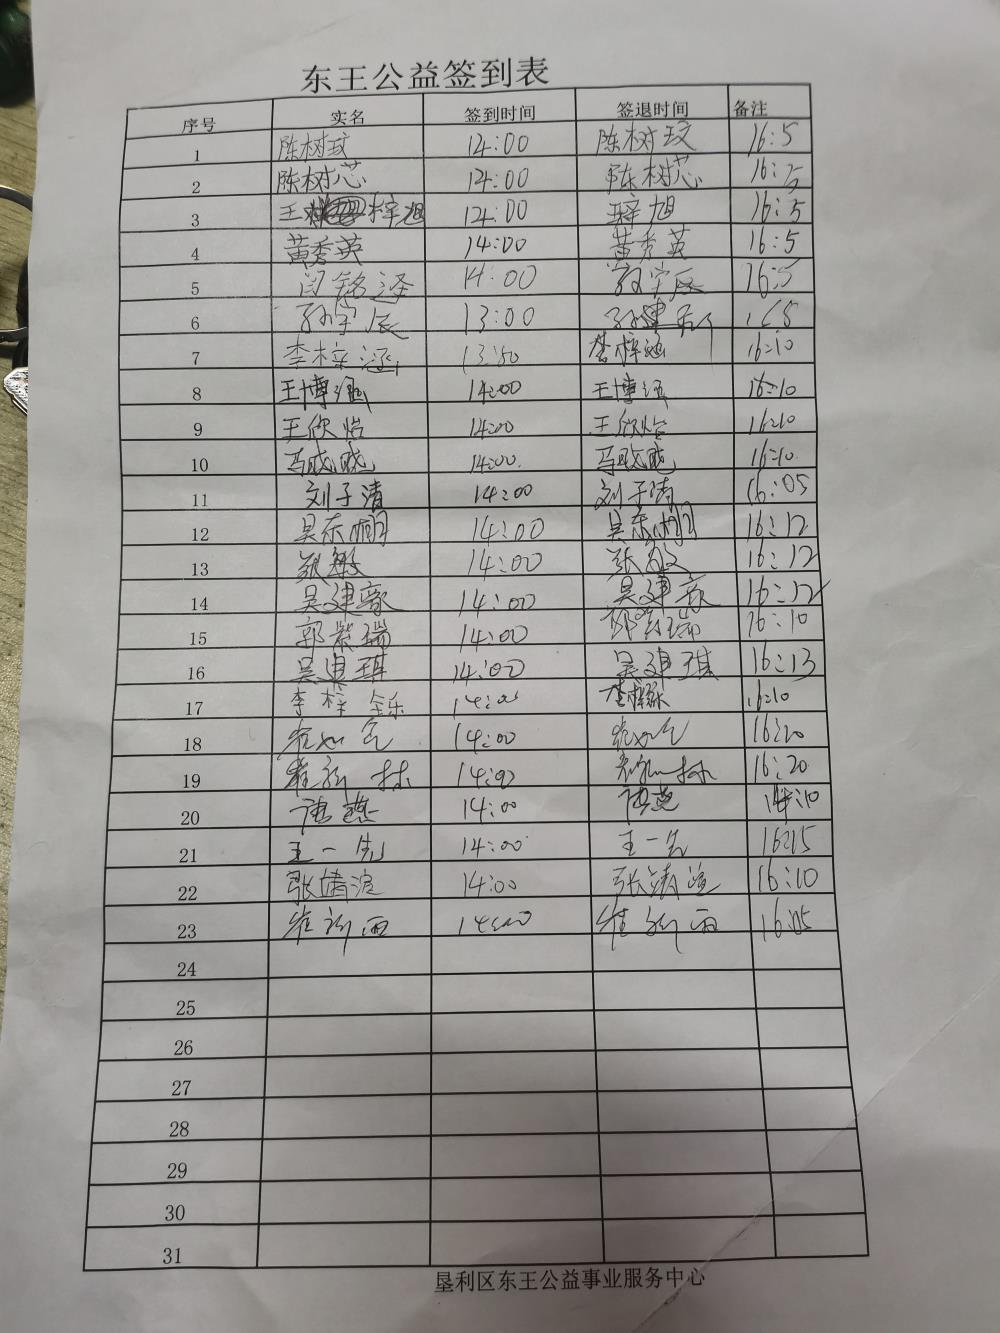 东王公益签到表
序号 实名 签到时间 签退时间 备注
1 陈树玟 14:00 陈树玟 16:5
2 陈树芯 14:00 陈树芯 16:5
3 王梓旭 14:00 王梓旭 16:5
4 黄秀英 14:00 黄秀英 16:5
5 闫铭泽 14:00 16:5
6 孙宇辰 13:00
7 李梓涵 13:50 李梓涵 16:10
8 王博涵 14:00 王博涵 16:10
9 王欣怡 14:00 王欣怡 16:10
10 马晓晓 14:00 马晓晓 16:10
11 刘子清 14:00 刘子清 16:05
12 吴东明 14:00 吴东明 16:12
13 张敏 14:00 张敏 16:12
14 吴建 14:00 吴建 16:12
15 郭紫瑞 14:00 郭紫瑞 16:10
16 吴建琪 14:00 吴建琪 16:13
17 李梓铄 14:00 李梓铄 16:10
18 14:00 16:20
19 崔新林 14:00 16:20
20 唐燕 14:00 唐燕 :10
21 王一先 14:00 王一先 16:15
22 张靖渲 14:00 张靖渲 16:10
23 崔新雨 14:00 崔新雨 16:05
24
25
26
27
28
29
30
31
垦利区东王公益事业服务中心